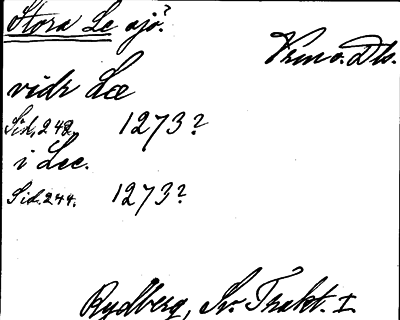 Stora Le sjö?
Vrm o. Dls.
vidr Læ
Sid. 242. 1273?
i Lee.
Sid. 244. 1273?
Rydberg, Sv. Trakt. I.